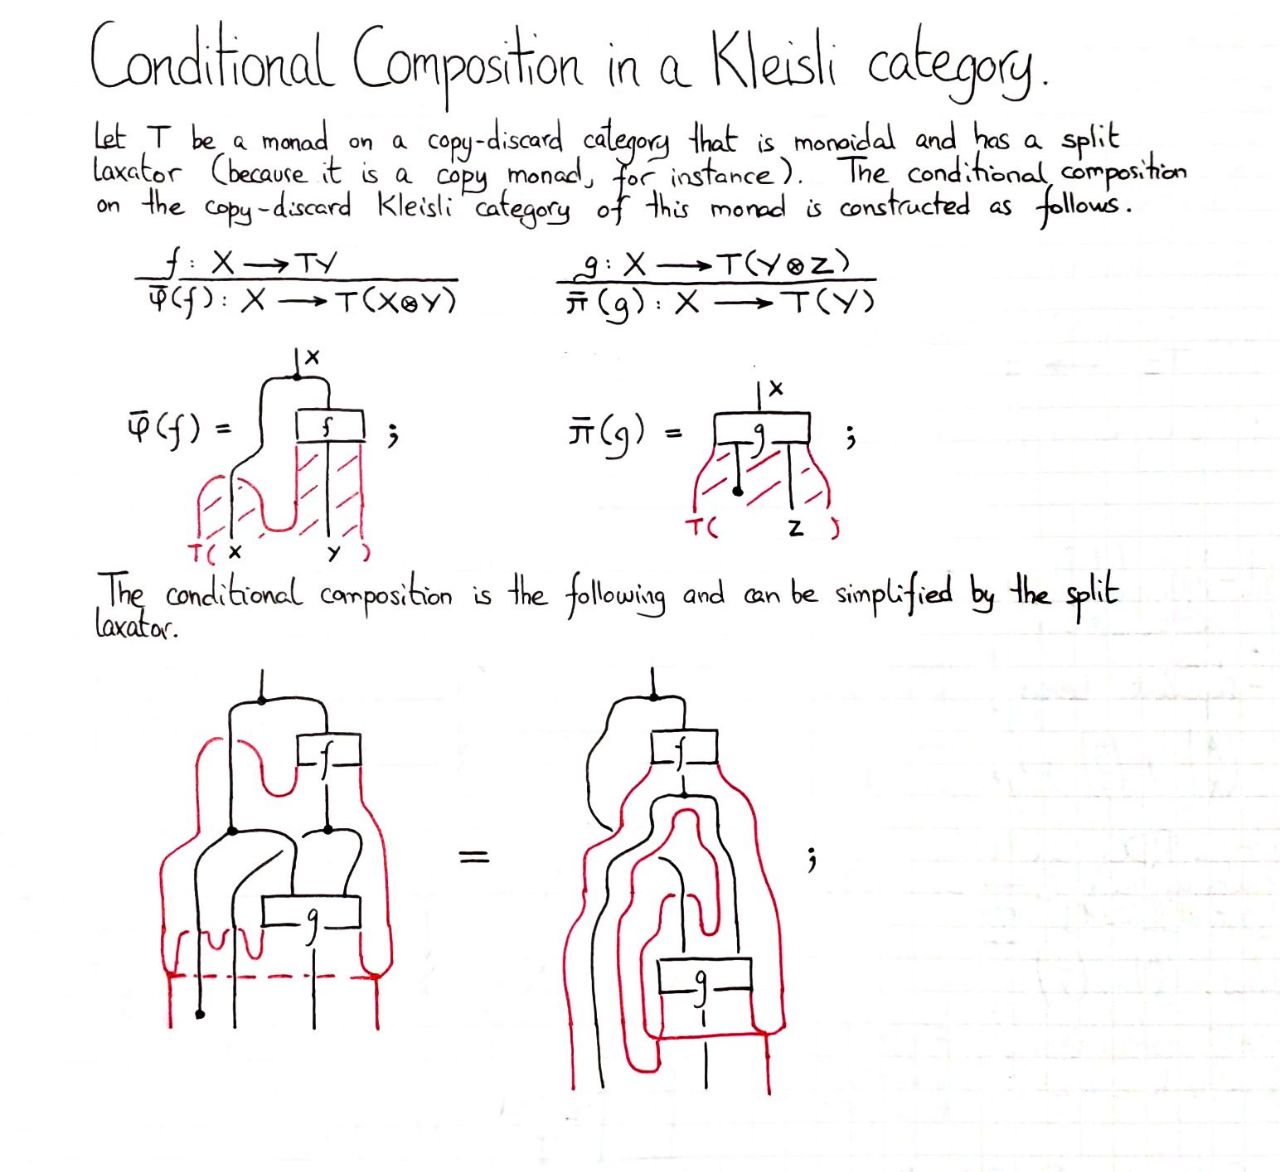 Conditional Composition in a Kleisli category.
Let T be a monad on a copy-discard category that is monoidal and has a split
laxator (because it is a copy monad, for instance). The conditional composition
on the copy-discard Kleisli category of this monad is constructed as follows.
f : X → TY
φ̄(f) : X → T(X⊗Y)
g : X → T(Y⊗Z)
π̄(g) : X → T(Y)
X
φ̄(f) =
f
;
T( X Y )
X
π̄(g) =
g
;
T( Z )
The conditional composition is the following and can be simplified by the split
laxator.
f
g
=
f
g
;